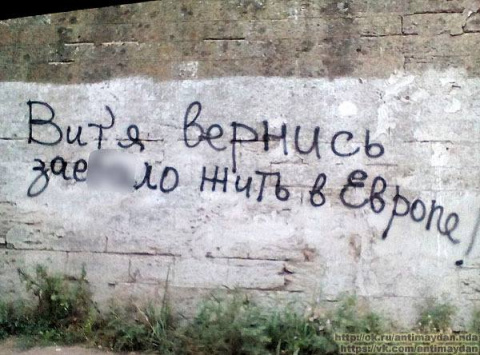 Витя вернись
зае ло жить в Европе!
http://ok.ru/antimaydan.nda
https://vk.com/antimaydan